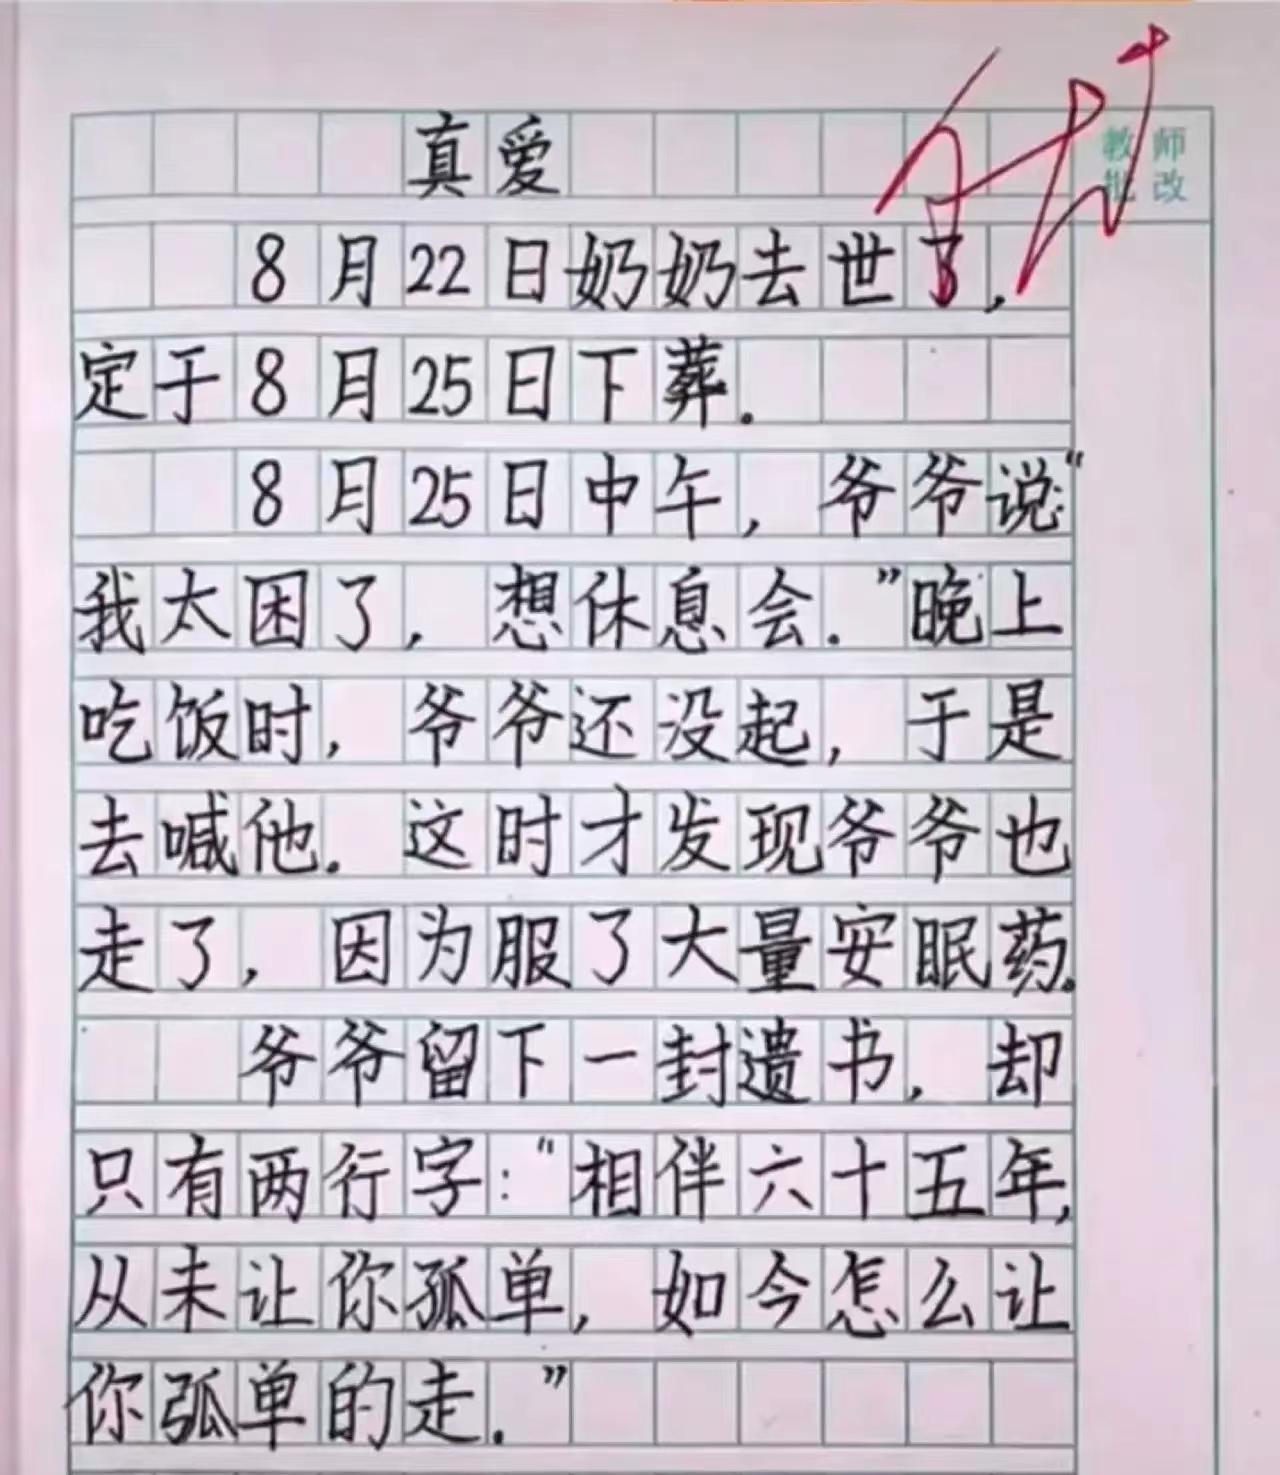 真爱
教师
批改
8月22日奶奶去世了,
定于8月25日下葬.
8月25日中午,爷爷说:“
我太困了,想休息会.”晚上
吃饭时,爷爷还没起,于是
去喊他.这时才发现爷爷也
走了,因为服了大量安眠药.
爷爷留下一封遗书,却
只有两行字:“相伴六十五年,
从未让你孤单,如今怎么让
你孤单的走.”